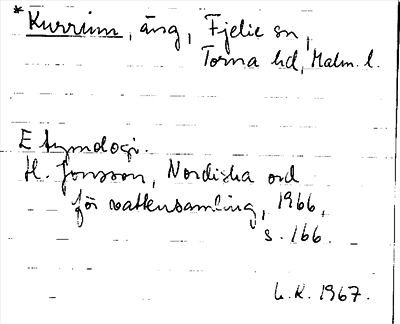 *Kurrim, äng, Fjelie sn,
Torna hd, Malm. l.
Etymologi.
H. Jonsson, Nordiska ord
för vattensamling, 1966,
s. 166.
L.K. 1967.